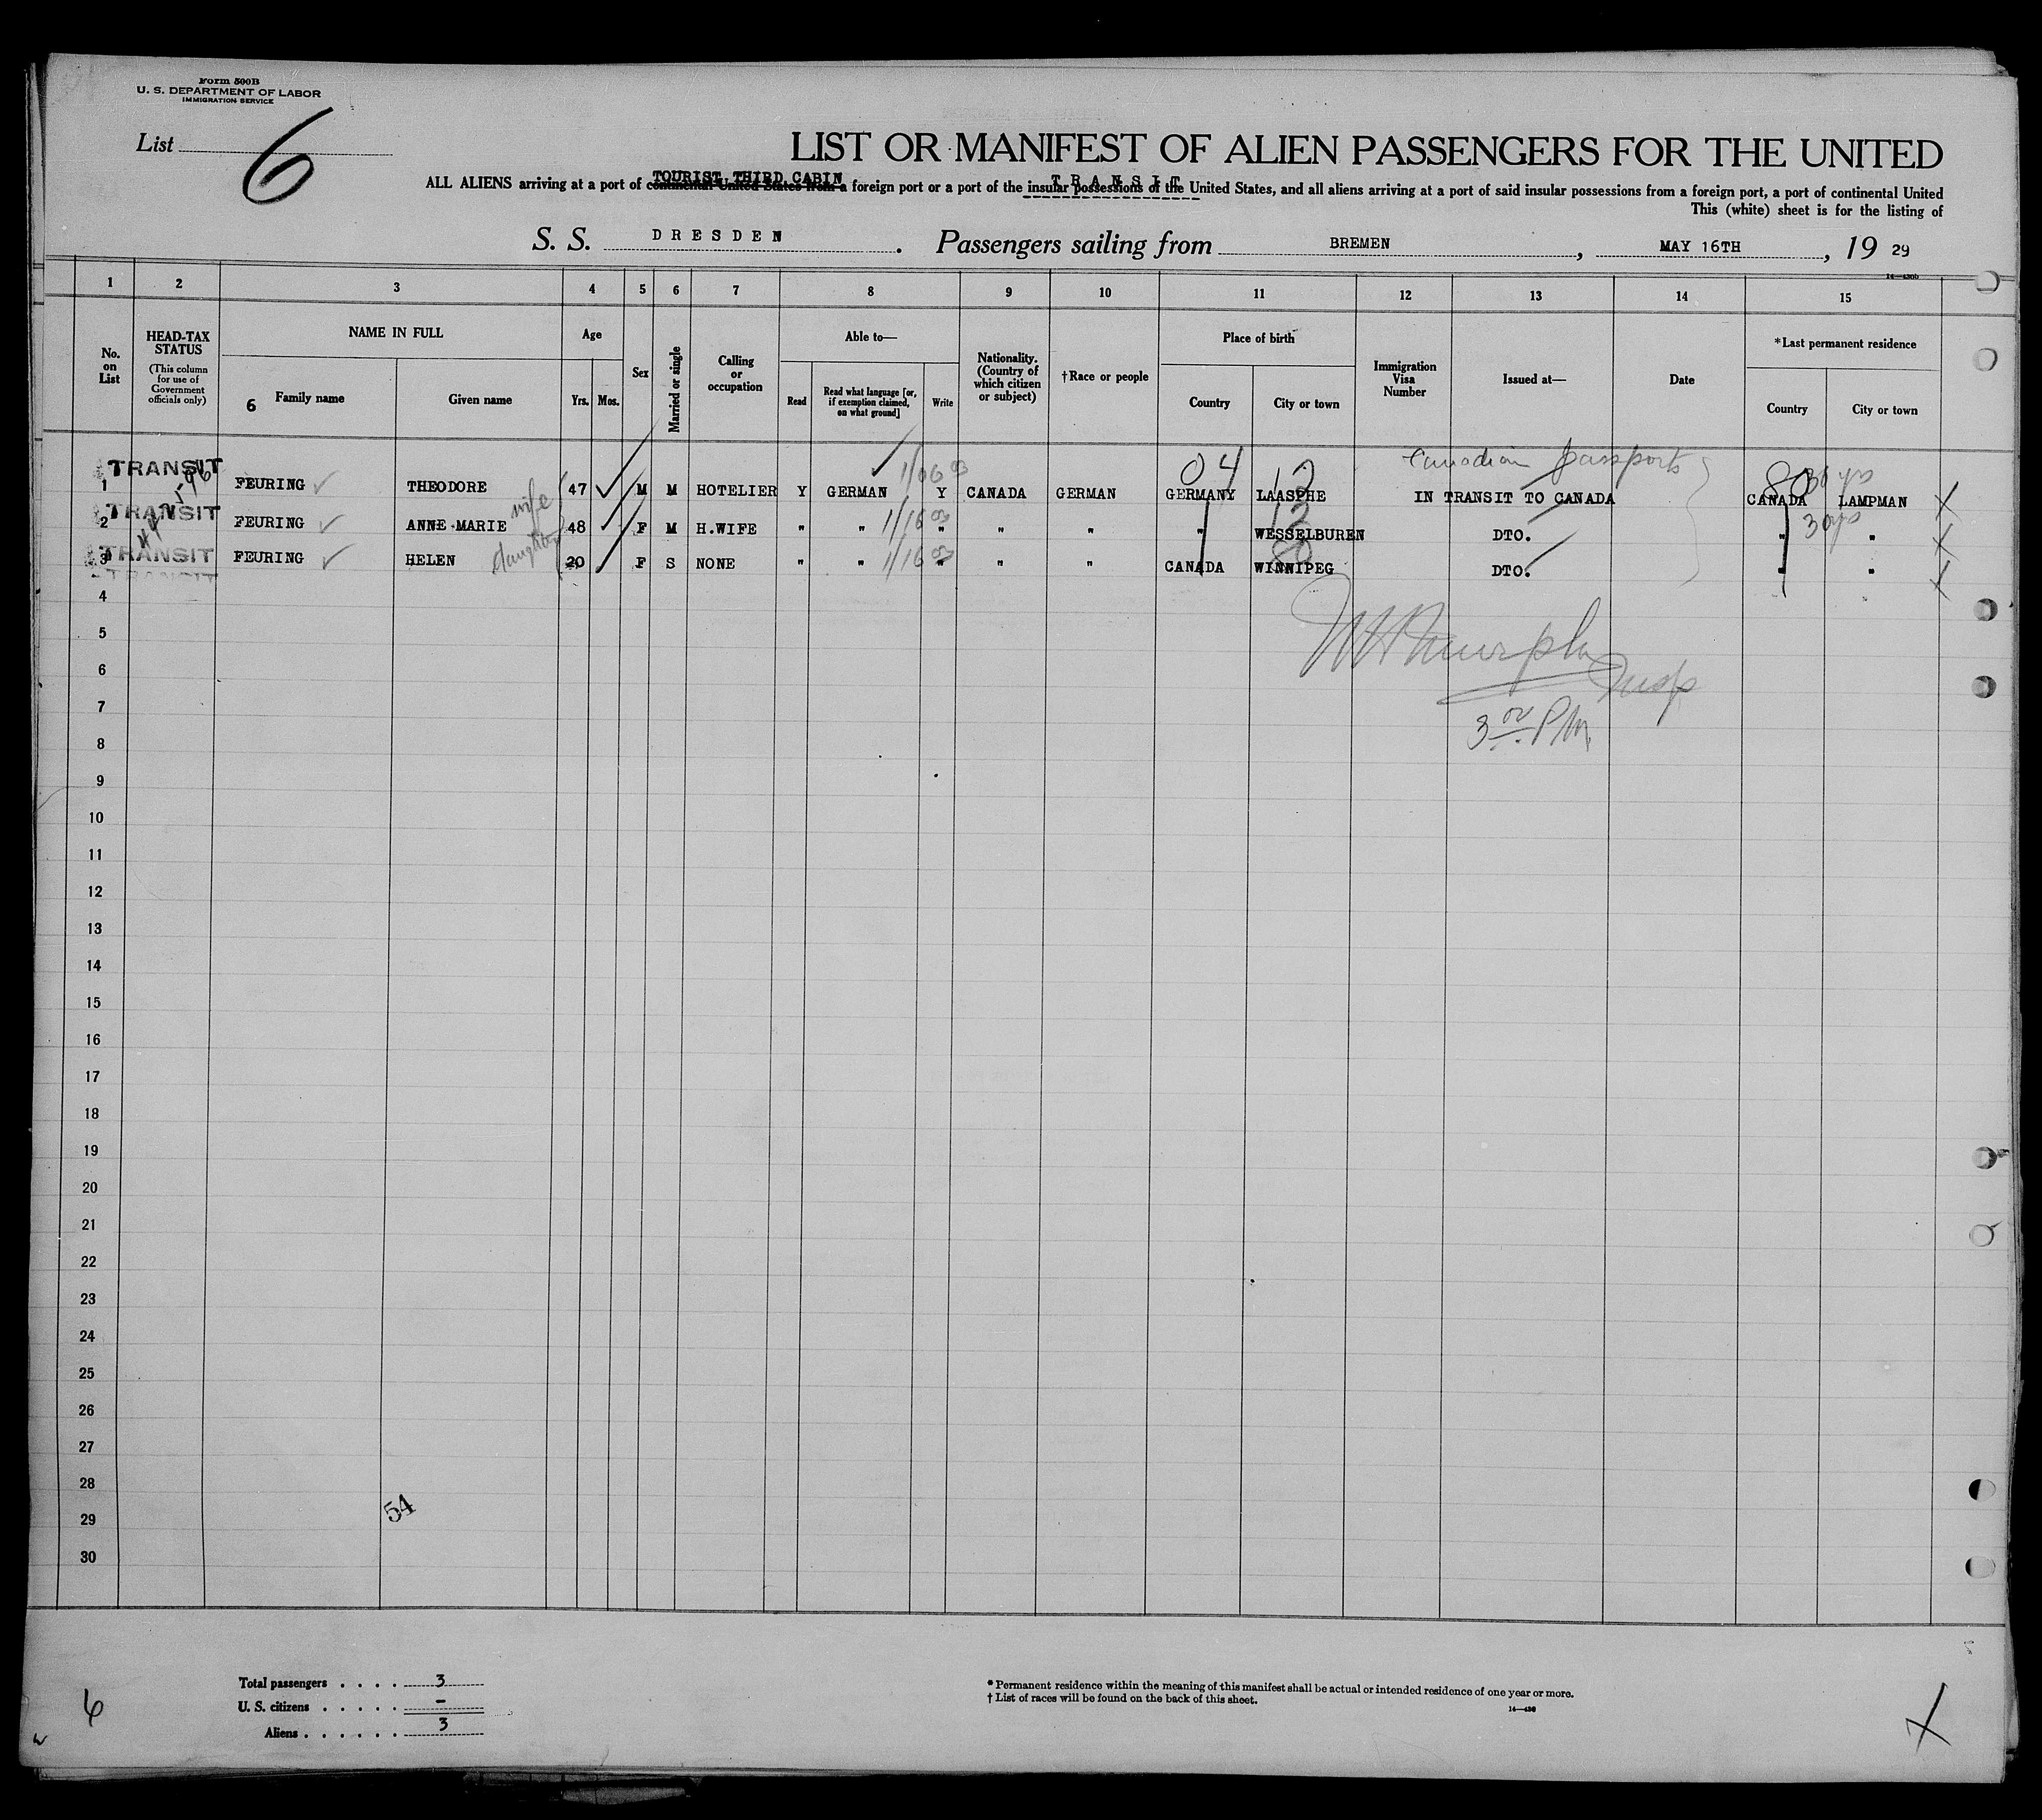 Form 500B
U. S. DEPARTMENT OF LABOR
IMMIGRATION SERVICE
List 6
LIST OR MANIFEST OF ALIEN PASSENGERS FOR THE UNITED
TOURIST THIRD CABIN TRANSIT
ALL ALIENS arriving at a port of continental United States from a foreign port or a port of the insular possessions of the United States, and all aliens arriving at a port of said insular possessions from a foreign port, a port of continental United
This (white) sheet is for the listing of
S. S. DRESDEN. Passengers sailing from BREMEN, MAY 16TH, 19 29
14—430b
1 2 3 4 5 6 7 8 9 10 11 12 13 14 15
No. on List
HEAD-TAX STATUS
(This column for use of Government officials only)
NAME IN FULL
6 Family name
Given name
Age
Yrs. Mos.
Sex
Married or single
Calling or occupation
Able to—
Read
Read what language [or, if exemption claimed, on what ground]
Write
Nationality. (Country of which citizen or subject)
†Race or people
Place of birth
Country
City or town
Immigration Visa Number
Issued at—
Date
*Last permanent residence
Country
City or town
Canadian passports
04 12 80
TRANSIT
1 FEURING THEODORE 47 M M HOTELIER Y GERMAN Y CANADA GERMAN GERMANY LAASPHE IN TRANSIT TO CANADA CANADA LAMPMAN
wife
TRANSIT
2 FEURING ANNE-MARIE 48 F M H.WIFE " " " " " " WESSELBUREN DTO. " "
daughter
TRANSIT
3 FEURING HELEN 20 F S NONE " " " " " CANADA WINNIPEG DTO. " "
TRANSIT
4
5
6
7
8
9
10
11
12
13
14
15
16
17
18
19
20
21
22
23
24
25
26
27
28
29
30
Murphy
Insp
3 00 P M.
54
Total passengers . . . . 3
U. S. citizens . . . . . –
Aliens . . . . . . 3
* Permanent residence within the meaning of this manifest shall be actual or intended residence of one year or more.
† List of races will be found on the back of this sheet.
14—430
6